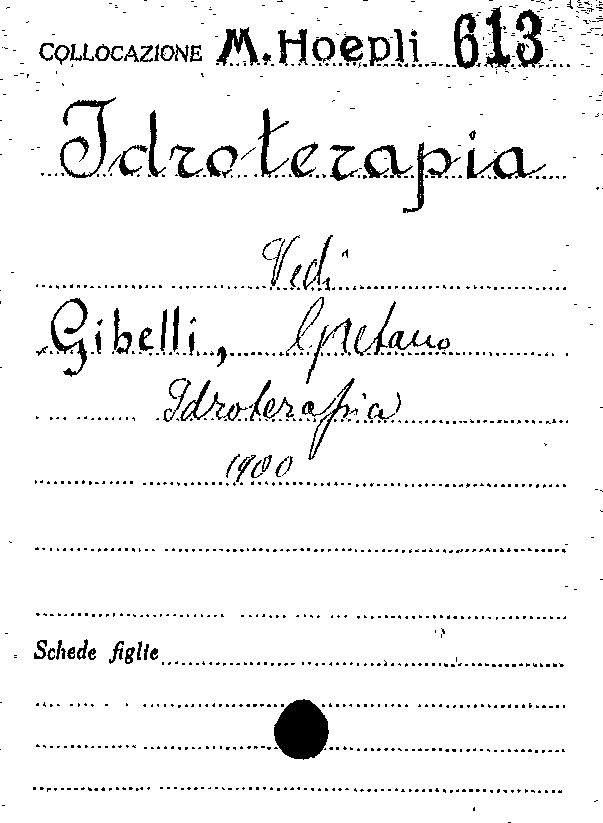 COLLOCAZIONE M. Hoepli 613
Idroterapia
Vedi
Gibelli, Gaetano
Idroterapia
1900
Schede figlie